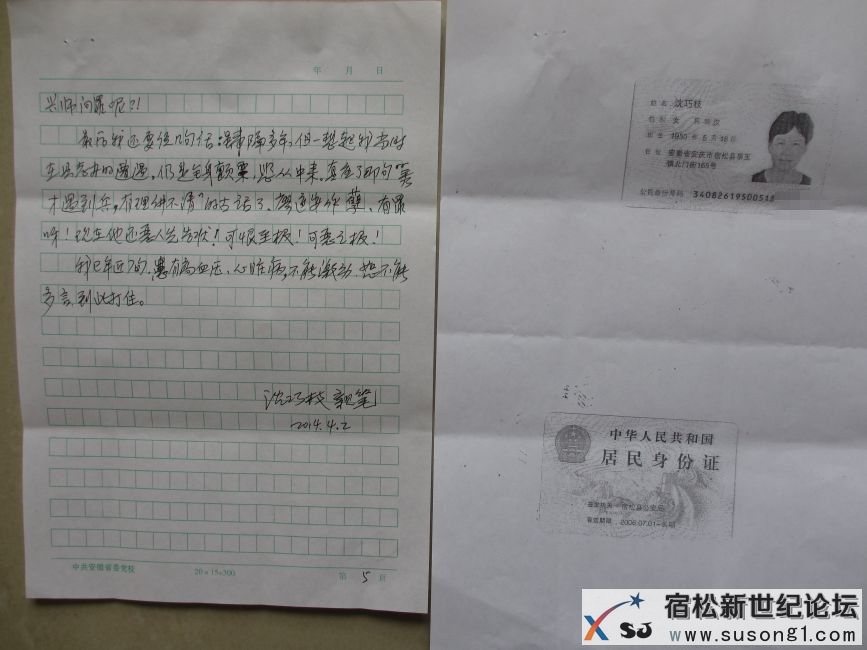 年 月 日
兴师问罪呢?!
最后我还要说几句话:事隔多年,但一想起我当时
在县的遭遇,仍是全身颤栗,悲从中来,真应了那句"秀
才遇到兵,有理讲不清"的古话了。作孽、有罪
呀!现在他还恶人先告状!可恨至极!可恶之极!
我已年近7旬,患有高血压、心脏病,不能激动,恕不能
多言,到此打住。
沈巧枝亲笔
2014.4.2
中共安徽省委党校 20×15=300 第 5 页
姓名 沈巧枝
性别 女 民族 汉
出生 1950年5月18日
住址 安徽省安庆市宿松县孚玉
镇北门街165号
公民身份号码 34082619500518
中华人民共和国
居民身份证
签发机关 宿松县公安局
有效期限 2006.07.01-长期
XSJ 宿松新世纪论坛
www.susong1.com